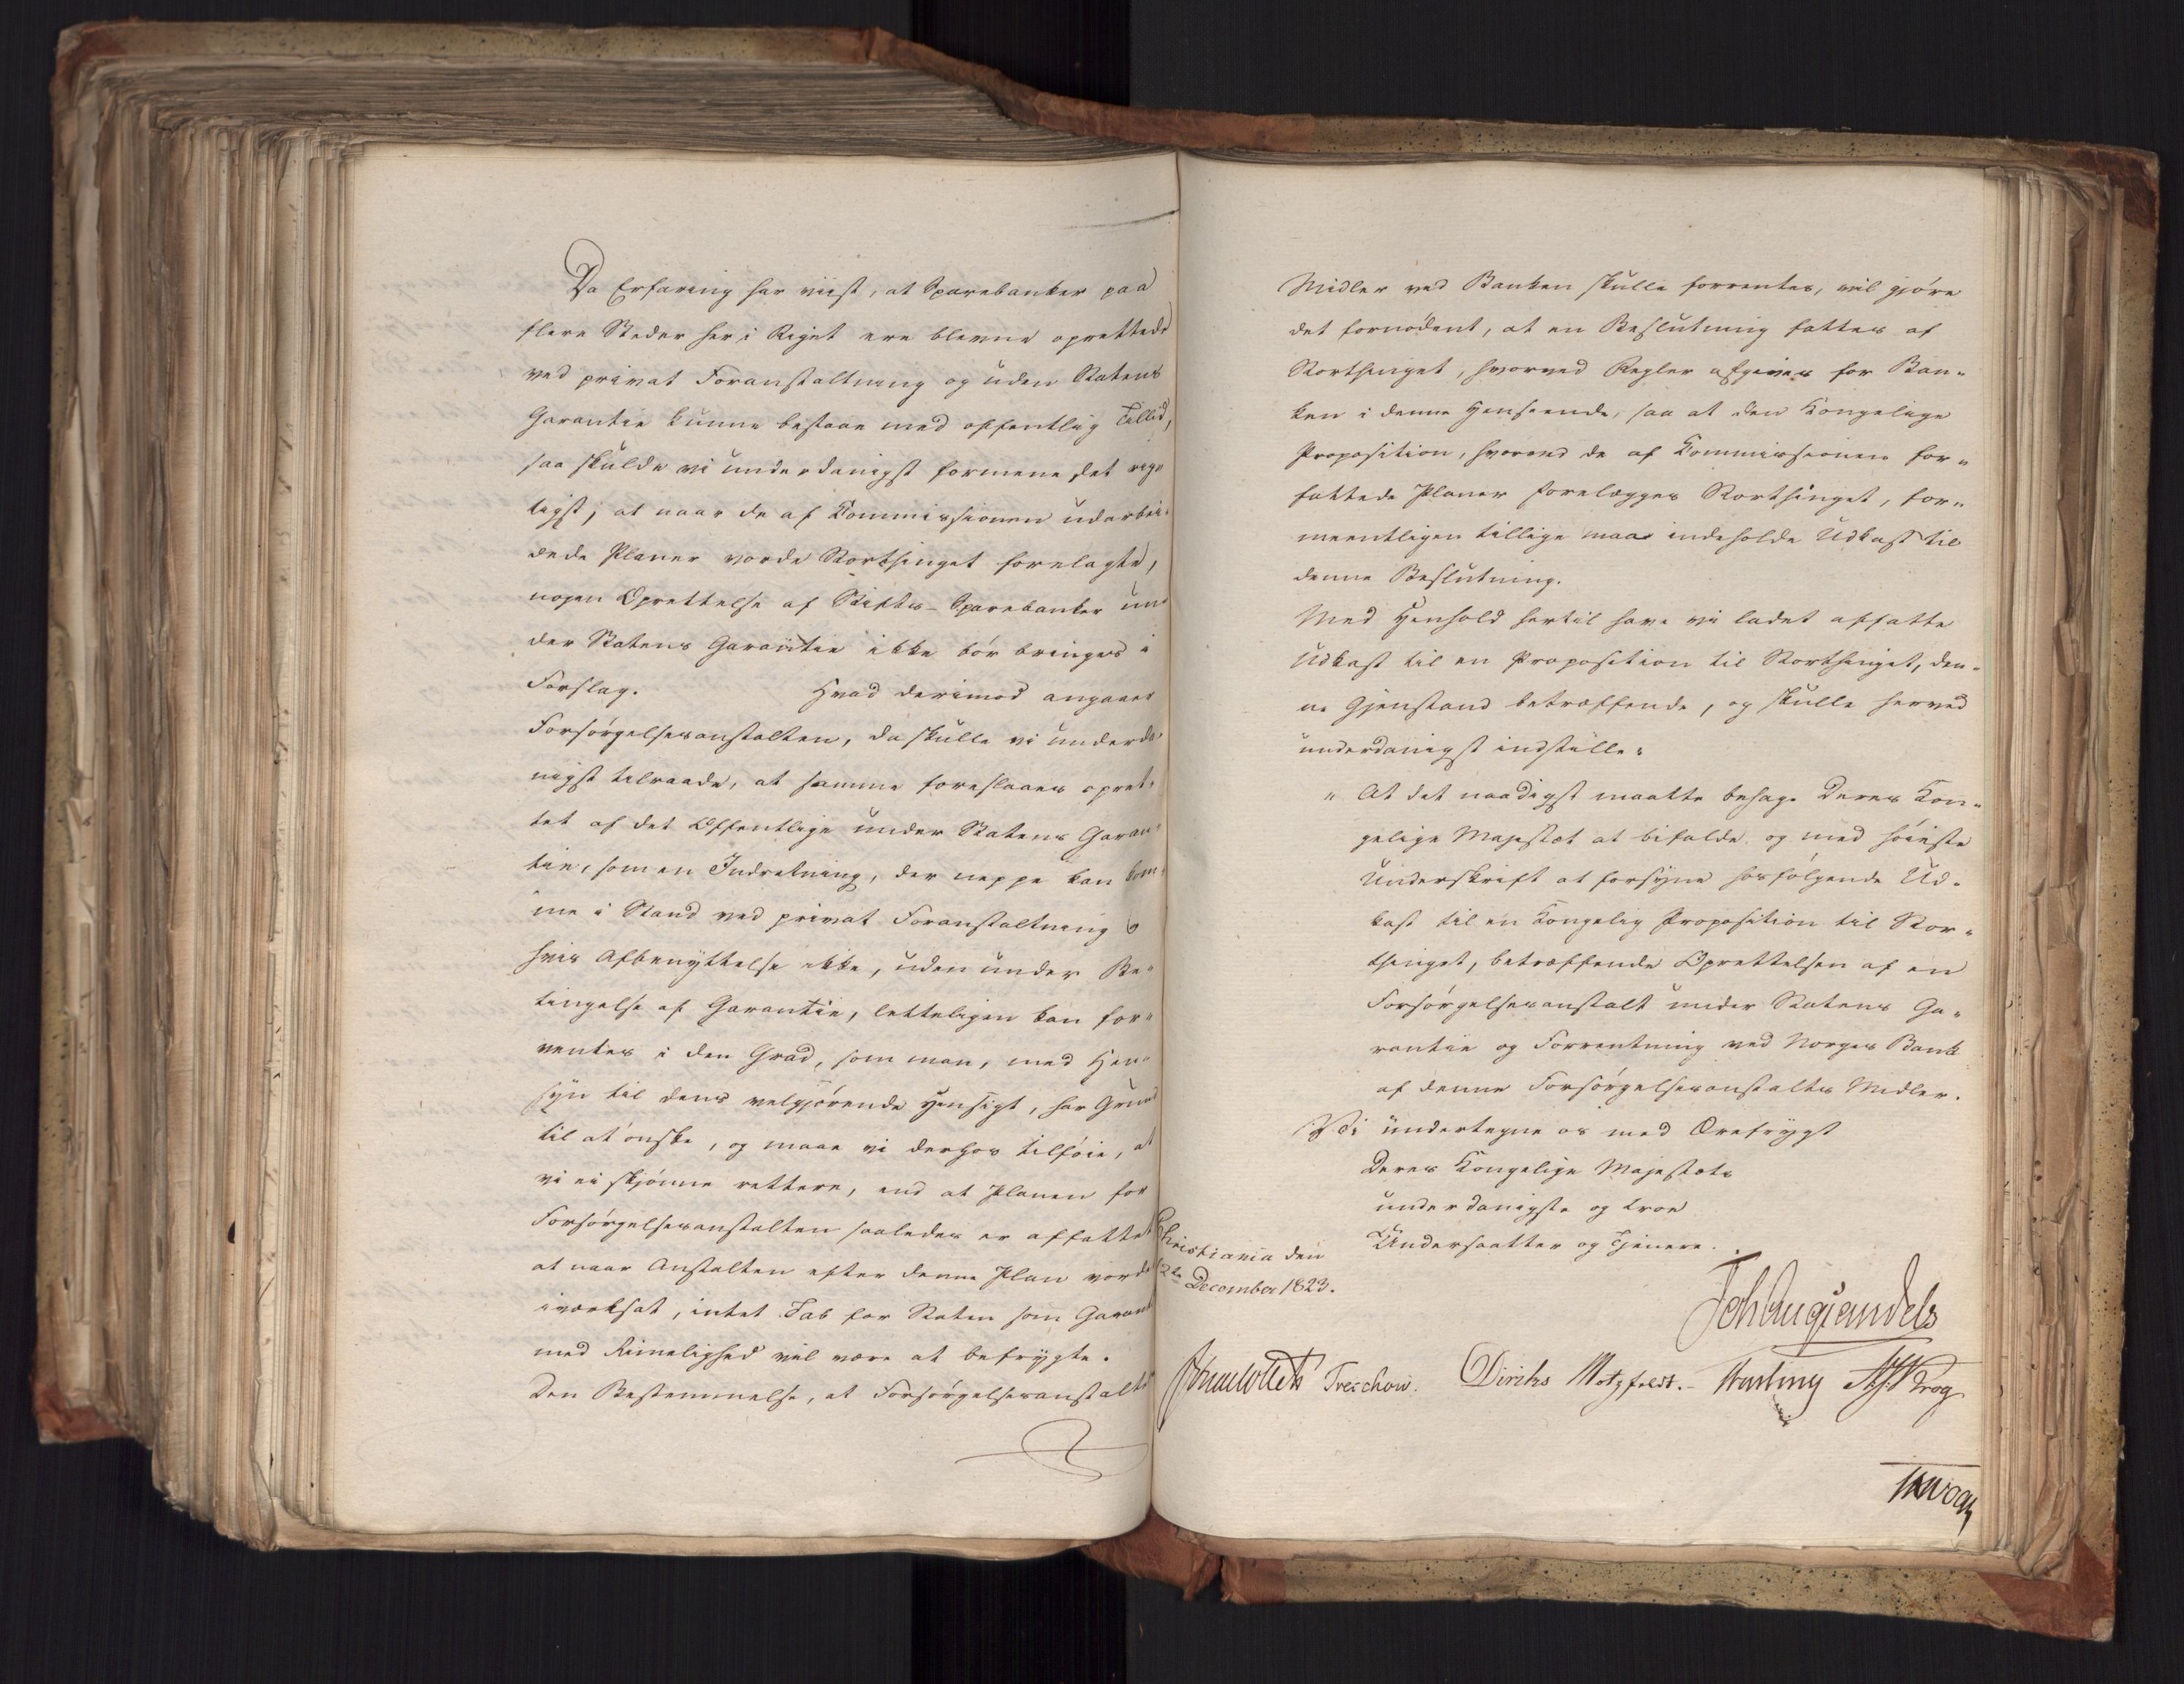 Da Erfaring har viist, at Sparebanker paa
flere Steder her i Riget ere blevne oprettede
ved privat Foranstaltning og uden Statens
Garantie kunne bestaae med offentlig Tillid,
saa skulde vi underdanigst formene det rig„
tigst, at naar de af Commissionen udarbei„
dede Planer vorde Storthinget forelagte,
nogen Oprettelse af Stifts-Sparebanker un„
der Statens Garantie ikke bør bringes i
Forslag. Hvad derimod angaaer
Forsørgelsesanstalten, da skulle vi underda„
nigst tilraade, at samme foreslaaes opret„
tet af det Offentlige under Statens Garan„
tie, som en Indretning, der neppe kan kom„
me i Stand ved privat Foranstaltning &
hvis Afbenyttelse ikke, uden under Be„
tingelse af Garantie, letteligen kan for„
ventes i den Grad, som man, med Hen„
syn til dens velgjørende Hensigt, har Grund
til at ønske, og maae vi derhos tilføie, at
vi ei skjønne rettere, end at Planen for
Forsørgelsesanstalten saaledes er affattet
at naar Anstalten efter denne Plan vorde
iværksat, intet Tab for Staten som Garant
med Rimelighed vil være at befrygte.
Den Bestemmelse, at Forsørgelsesanstalts
Midler ved Banken skulle forrentes, vil gjøre
det fornødent, at en Beslutning fattes af
Storthinget, hvorved Regler afgives for Ban„
ken i denne Henseende, saa at den Kongelige
Proposition, hvorved de af Commissionen for„
fattede Planer forelægges Storthinget, for„
meentligen tillige maae indeholde Udkast til
denne Beslutning.
Med Henhold hertil have vi ladet affatte
Udkast til en Proposition til Storthinget, den„
ne Gjenstand betræffende, og skulle herved
underdanigst indstille:
„ At det naadigst maatte behage Deres Kon„
gelige Majestæt at bifalde og med høieste
Underskrift at forsyne hosfølgende Ud„
kast til en Kongelig Proposition til Stor„
thinget, betræffende Oprettelsen af en
Forsørgelsesanstalt under Statens Ga„
rantie og Forrentning ved Norges Bank
af denne Forsørgelsesanstalts Midler.
Vi undertegne os med Ærefrygt
Deres Kongelige Majestæts
underdanigste og troe
Undersaatter og Tjenere.
Christiania den
12te December 1823.
Joh Aug Sandels
JCollett Treschow. Diriks Motzfeldt. Fasting Krog